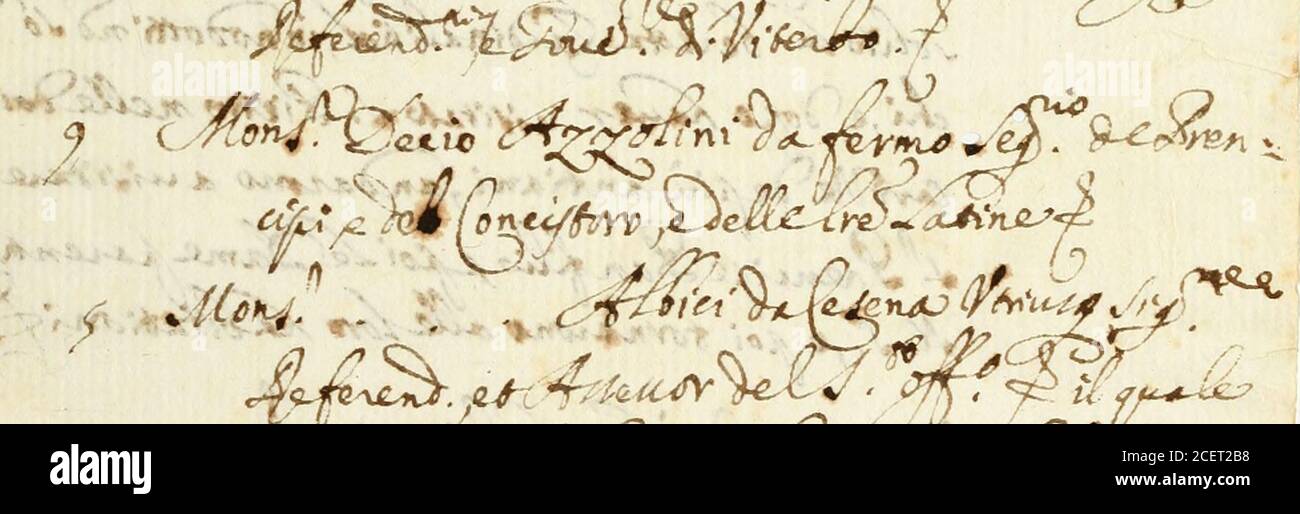 Referend.rio, e Gover.re d. Viterbo.
9 Mons.r Decio Azzolini da fermo Seg.rio de Pren-
cipi, e del Concistoro, e delle lre Latine
5 Mons.r . . . . Albici da Cesena Vtriusq Sig.
Referend., et Assessor del S.to Off.o il quale
alamy
Image ID: 2CET2B8
www.alamy.com